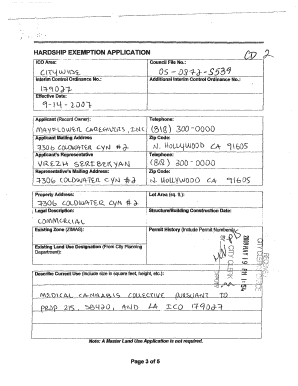 HARDSHIP EXEMPTION APPLICATION
CD 2
ICO Area: Council File No.:
CITYWIDE 05-0872-S539
Interim Control Ordinance No.: Additional Interim Control Ordinance No.:
179027
Effective Date:
9-14-2007
Applicant (Record Owner): Telephone:
MAYFLOWER CAREGIVERS, INC. (818) 300-0000
Applicant Mailing Address Zip Code
7306 COLDWATER CYN #2 N. HOLLYWOOD CA 91605
Applicant's Representative Telephone:
VREZH SEREBEKYAN (818) 300-0000
Representative's Mailing Address Zip Code:
7306 COLDWATER CYN #2 N. HOLLYWOOD CA 91605
Property Address: Lot Area (sq. ft.):
7306 COLDWATER CYN #2
Legal Description: Structure/Building Construction Date:
COMMERCIAL
Existing Zone (ZIMAS): Permit History (Include Permit Numbers)
Existing Land Use Designation (From City Planning
Department):
CITY CLERK
2009 MAY 19 PM 1:54
Describe Current Use (Include size in square feet, height, etc.):
MEDICAL CANNABIS COLLECTIVE PURSUANT TO
PROP 215, SB420, AND LA ICO 179027
Note: A Master Land Use Application is not required.
Page 3 of 5